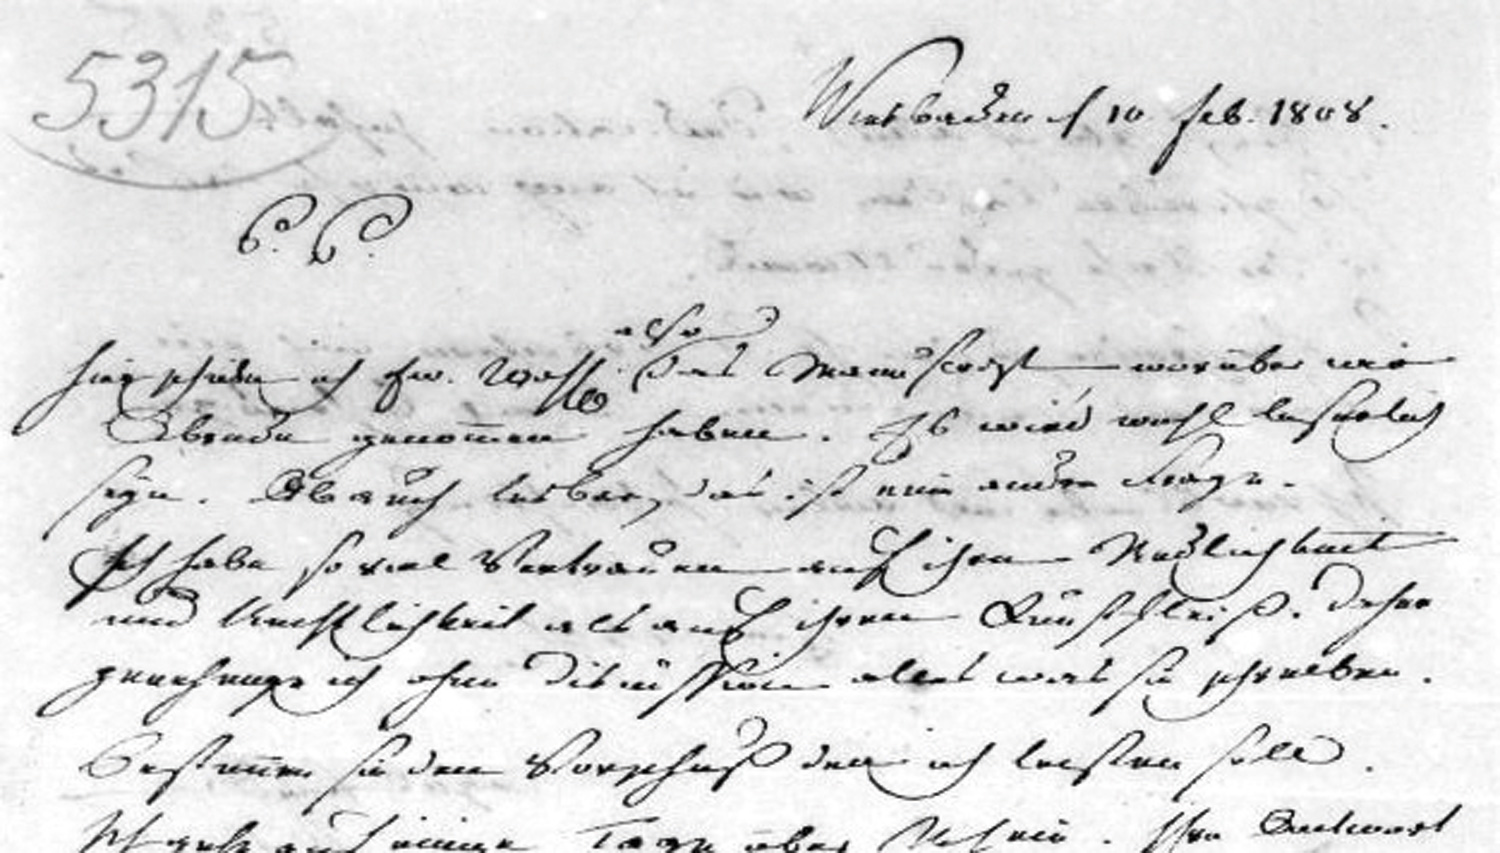 5315
Wiesbaden d 10 Feb. 1808.
P. P.
also
hier schicke ich Ew. das Manuscript worüber wir
Abrede genommen haben. Es wird wohl leserlich
seyn. Ob auch lesbar, das ist eine andre Frage.
Ich habe so viel Vertrauen auf ihre Redlichkeit
und Rechtlichkeit als auf ihren Kunstfleiß. Daher
genehmige ich ohne Discussion alles was sie schreiben.
Bestimmen sie den Vorschuß den ich leisten soll.
Ich gehe auf einige Tage über Rhein. Ihre Antwort